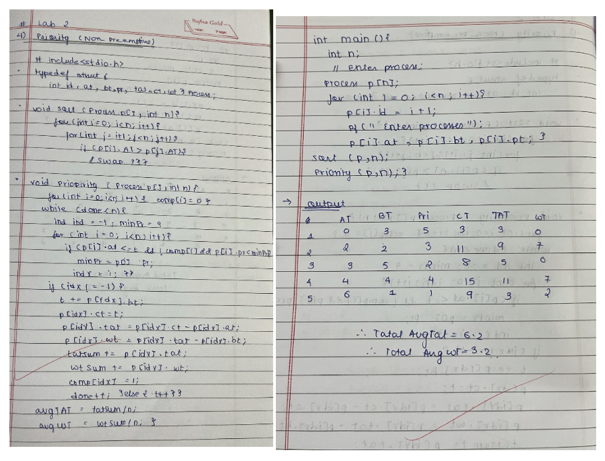 # Lab 2
4) Priority (Non Preemptive)
# include <stdio.h>
typedef struct {
int id, at, bt, pt, tat, ct, wt } Process;
void sort (Process p[], int n) {
for (int i=0; i<n; i++) {
for (int j=i+1; j<n; j++) {
if (p[i].AT > p[j].AT) {
swap }}}
void Priority (Process p[], int n) {
for (int i=0; i<n; i++) { comp[i]=0 }
while (done<n) {
int ind = -1, minPr = 9
for (int i=0; i<n; i++) {
if (p[i].at <=t && !comp[i] && p[i].pr<minPr) {
minPr = p[i].Pr;
indx = i; }}
if (idx != -1) {
t += p[idx].bt;
p[idx].ct = t;
p[idx].tat = p[idx].ct - p[idx].at;
p[idx].wt = p[idx].tat - p[idx].bt;
tatsum += p[idx].tat;
wtsum += p[idx].wt;
comp[idx] = 1;
done++; } else { t++ } }
avgTAT = tatsum/n;
avgWT = wtsum/n; }
int main () {
int n;
// Enter process;
Process p[n];
for (int i=0; i<n; i++) {
p[i].id = i+1;
pf (" Enter processes");
p[i].at, p[i].bt, p[i].pt; }
sort (p,n);
Priority (p,n); }
→ Output
# AT BT Pri CT TAT WT
1 0 3 5 3 3 0
2 2 2 3 11 9 7
3 3 5 2 8 5 0
4 4 4 4 15 11 7
5 6 1 1 9 3 2
∴ Total AvgTat = 6.2
∴ Total Avg WT = 3.2